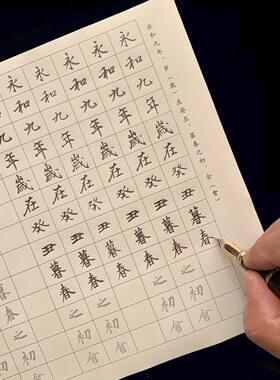 永和九年，岁（歲）在癸丑，暮春之初，会（會）
永和九年歲在癸丑暮春
永和九年歲在癸丑暮春之初會
永和九年歲在癸丑暮春
永和九年歲在癸丑暮春之初會
永和九年歲在癸丑暮春
和九年歲在癸丑暮春之初會